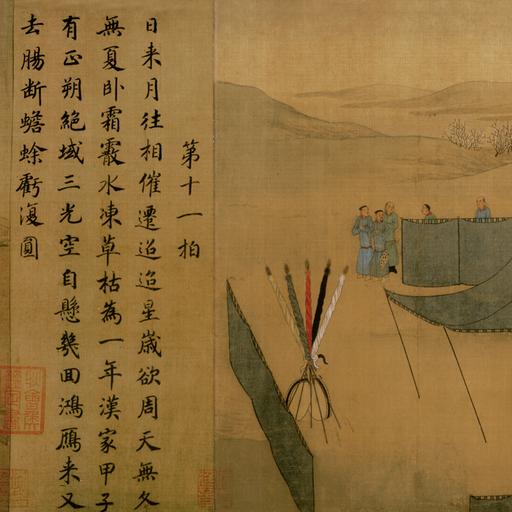 第十一拍
日来月往相催遷迢迢星歳欲周天無冬
無夏卧霜霰水凍草枯為一年漢家甲子
有正朔絶域三光空自懸幾回鴻鴈来又
去腸断蟾蜍虧復圓